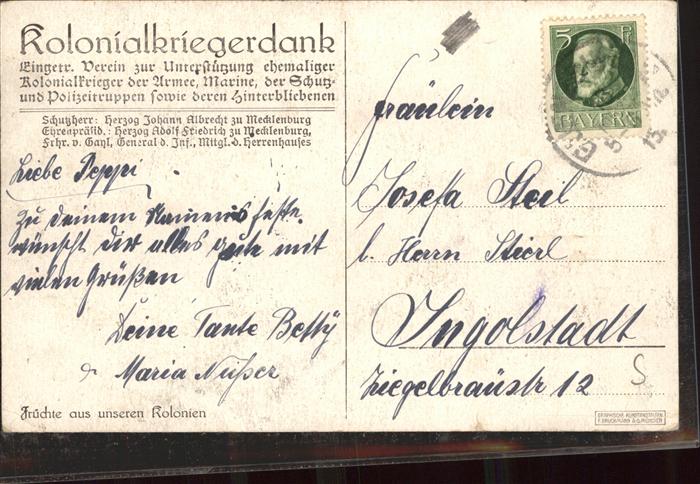 Kolonialkriegerdank
Eingetr. Verein zur Unterstützung ehemaliger
Kolonialkrieger der Armee, Marine, der Schutz-
und Polizeitruppen sowie deren Hinterbliebenen
Schutzherr: Herzog Johann Albrecht zu Mecklenburg
Ehrenpräsid.: Herzog Adolf Friedrich zu Mecklenburg,
Frhr. v. Gayl, General d. Inf., Mitgl. d. Herrenhauses
Liebe Peppi
Zu deinem Namensfeste
wünscht dir alles gute mit
vielen Grüßen
Deine Tante Betty
Maria Nußer
Früchte aus unseren Kolonien
5 Pf
BAYERN
Fräulein
Josefa Steil
b. Herrn Stierl
Ingolstadt
Ziegelbräustr 12
S
GRAPHISCHE KUNSTANSTALTEN
F. BRUCKMANN A.G. MÜNCHEN